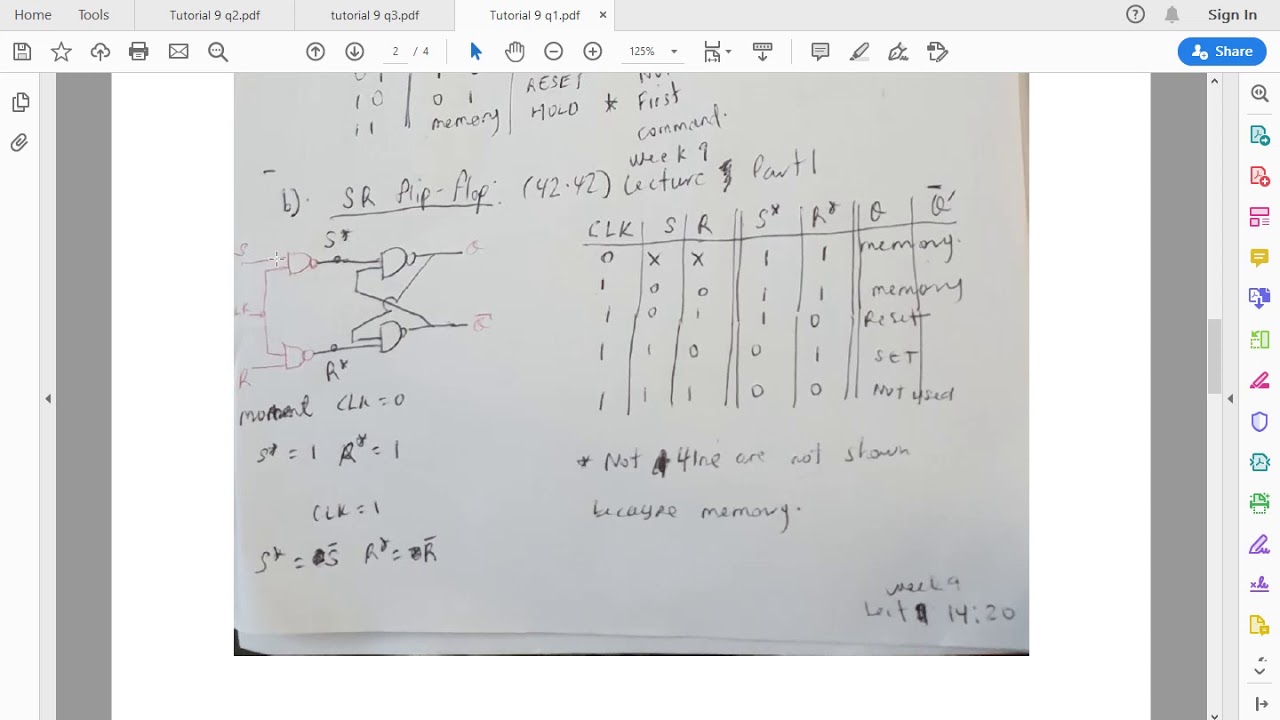 Home Tools Tutorial 9 q2.pdf tutorial 9 q3.pdf Tutorial 9 q1.pdf × Sign In
2 / 4 125% Share
0 1 1 RESET
1 0 0 1 HOLD * First
1 1 memory command.
week 9
b). SR flip-flop: (42.42) Lecture Part 1
CLK S R S* R* Q Q̄'
0 x x 1 1 memory.
1 0 0 1 1 memory
1 0 1 1 0 Reset
1 1 0 0 1 SET
1 1 1 0 0 Not used
S S* Q
R R* Q̄
moment CLK = 0
S* = 1 R* = 1
CLK = 1
S* = S̄ R* = R̄
* Not 4 line are not shown
because memory.
week 9
Lect 1 14:20